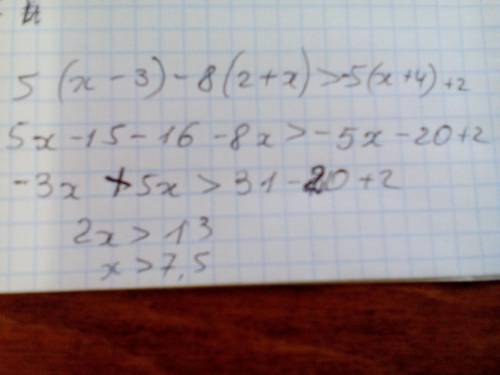 5 (x - 3) - 8(2+x) > -5(x+4) +2
5x -15 - 16 - 8x > - 5x - 20 + 2
-3x + 5x > 31 - 20 + 2
2x > 13
x > 7,5